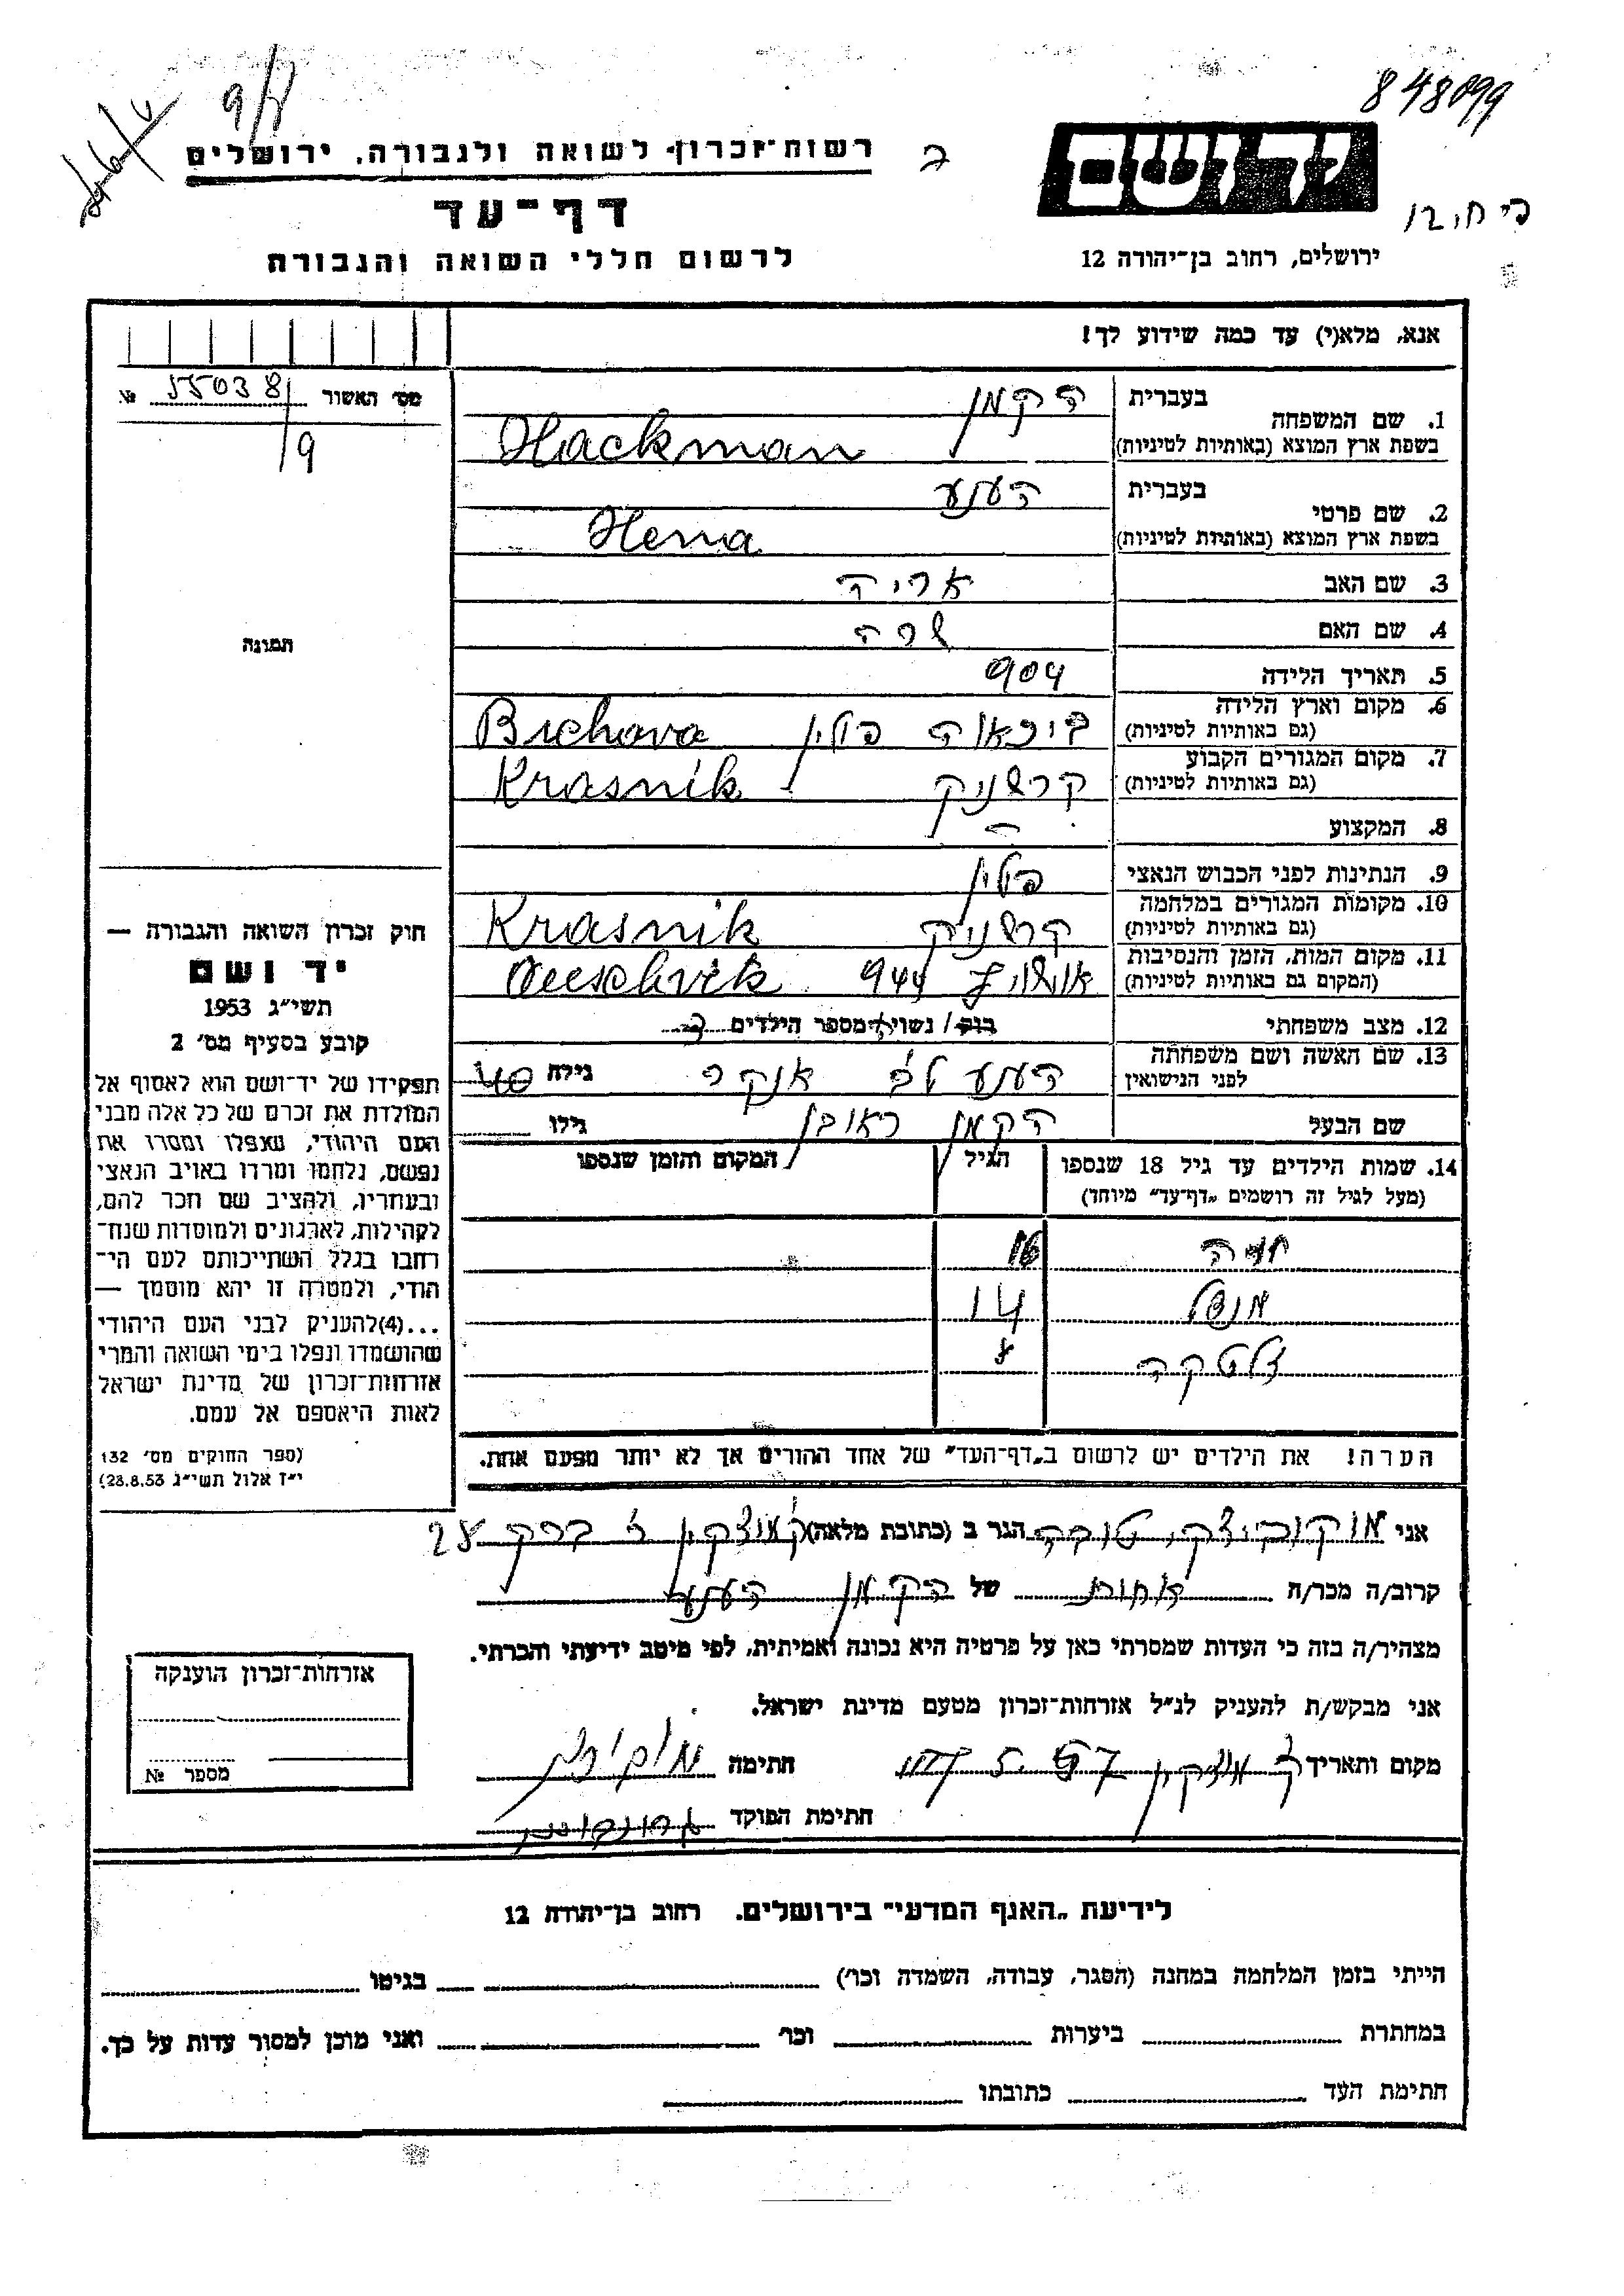 848099
9/8
רשות־זכרון לשואה ולגבורה, ירושלים
יד ושם
דף־עד
לרשום חללי השואה והגבורה
ירושלים, רחוב בן־יהודה 12
אנא, מלא(י) עד כמה שידוע לך!
מס׳ האשור 55038 №
/9
תמונה
1. שם המשפחה בעברית הקמן
בשפת ארץ המוצא (באותיות לטיניות) Hackman
2. שם פרטי בעברית הענע
בשפת ארץ המוצא (באותיות לטיניות) Hena
3. שם האב אריה
4. שם האם שרה
5. תאריך הלידה 904
6. מקום וארץ הלידה
(גם באותיות לטיניות) ביכאוה פולין Bichava
7. מקום המגורים הקבוע
(גם באותיות לטיניות) קרשניק Krasnik
8. המקצוע
9. הנתינות לפני הכבוש הנאצי פולין
10. מקומות המגורים במלחמה
(גם באותיות לטיניות) קרשניק Krasnik
11. מקום המות, הזמן והנסיבות
(המקום גם באותיות לטיניות) 944
12. מצב משפחתי רווק / נשוי / מספר הילדים
13. שם האשה ושם משפחתה
לפני הנישואין הענע גילה 40
שם הבעל הקמן ראובן גילו
14. שמות הילדים עד גיל 18 שנספו הגיל המקום והזמן שנספו
(מעל לגיל זה רושמים „דף־עד״ מיוחד)
חיה 16
מנדל 14
זלטקה 8
הערה! את הילדים יש לרשום ב„דף־העד״ של אחד ההורים אך לא יותר מפעם אחת.
חוק זכרון השואה והגבורה —
יד ושם
תשי״ג 1953
קובע בסעיף מס׳ 2
תפקידו של יד־ושם הוא לאסוף אל
המולדת את זכרם של כל אלה מבני
העם היהודי, שנפלו ומסרו את
נפשם, נלחמו ומרדו באויב הנאצי
ובעוזריו, ולהציב שם וזכר להם,
לקהילות, לארגונים ולמוסדות שנח־
רבו בגלל השתייכותם לעם הי־
הודי, ולמטרה זו יהא מוסמך —
...(4) להעניק לבני העם היהודי
שהושמדו ונפלו בימי השואה והמרי
אזרחות־זכרון של מדינת ישראל
לאות היאספם אל עמם.
(ספר החוקים מס׳ 132
י״ז אלול תשי״ג 28.8.53)
אני טובה הגר ב (כתובת מלאה) ק׳ מוצקין ז׳ ברק 28
קרוב/ה מכר/ה אחות של הקמן הענע
מצהיר/ה בזה כי העדות שמסרתי כאן על פרטיה היא נכונה ואמיתית, לפי מיטב ידיעתי והכרתי.
אני מבקש/ת להעניק לנ״ל אזרחות־זכרון מטעם מדינת ישראל.
מקום ותאריך ק׳ מוצקין חתימה
חתימת הפוקד
אזרחות־זכרון הוענקה
מספר №
לידיעת „האגף המדעי״ בירושלים. רחוב בן־יהודה 12
הייתי בזמן המלחמה במחנה (הסגר, עבודה, השמדה וכו׳) בגיטו
במחתרת ביערות וכו׳ ואני מוכן למסור עדות על כך.
חתימת העד כתובתו